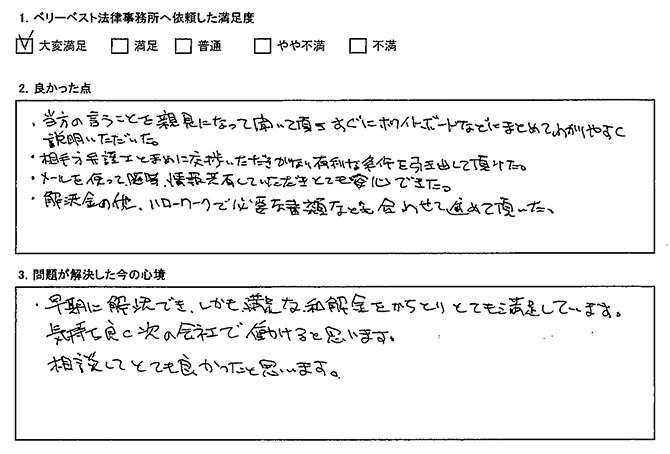 1. ベリーベスト法律事務所へ依頼した満足度
☑ 大変満足 □ 満足 □ 普通 □ やや不満 □ 不満
2. 良かった点
・当方の言うことを親見になって聞いて頂きすぐにホワイトボードなどにまとめてわかりやすく
説明いただいた。
・相手方弁護士とまめに交渉いただきかなり有利な条件を引き出して頂けた。
・メールを使って随時、情報共有していただきとても安心できた。
・解決金の他、ハローワークで必要な書類なども合わせて進めて頂いた。
3. 問題が解決した今の心境
・早期に解決でき、しかも満足な和解金をかちとりとても満足しています。
気持ち良く次の会社で働けると思います。
相談してとても良かったと思います。